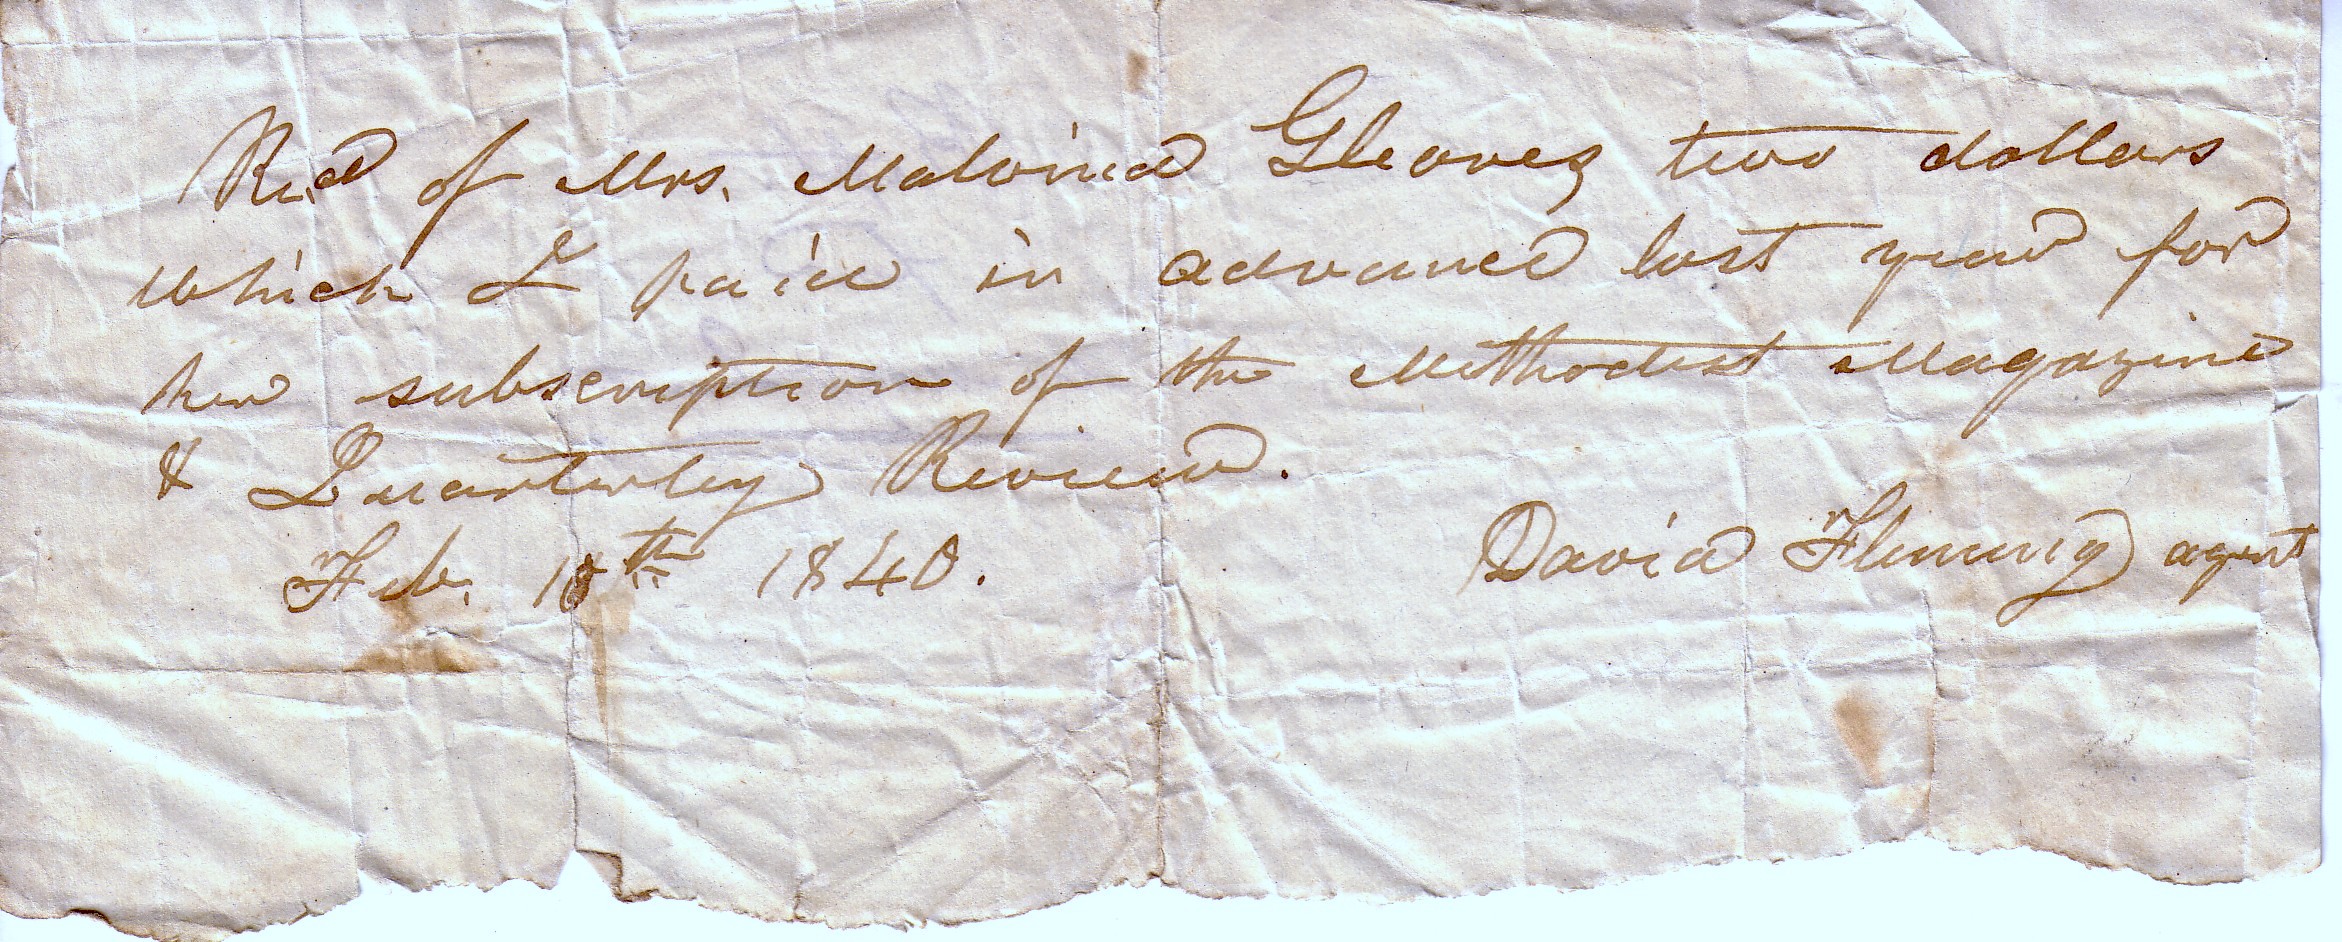 Recd of Mrs. Malvina Gleaves two dollars
which I paid in advance last year for
her subscription of the Methodist Magazine
& Quarterley Review.
Feb. 18th 1840.
David Fleming agent